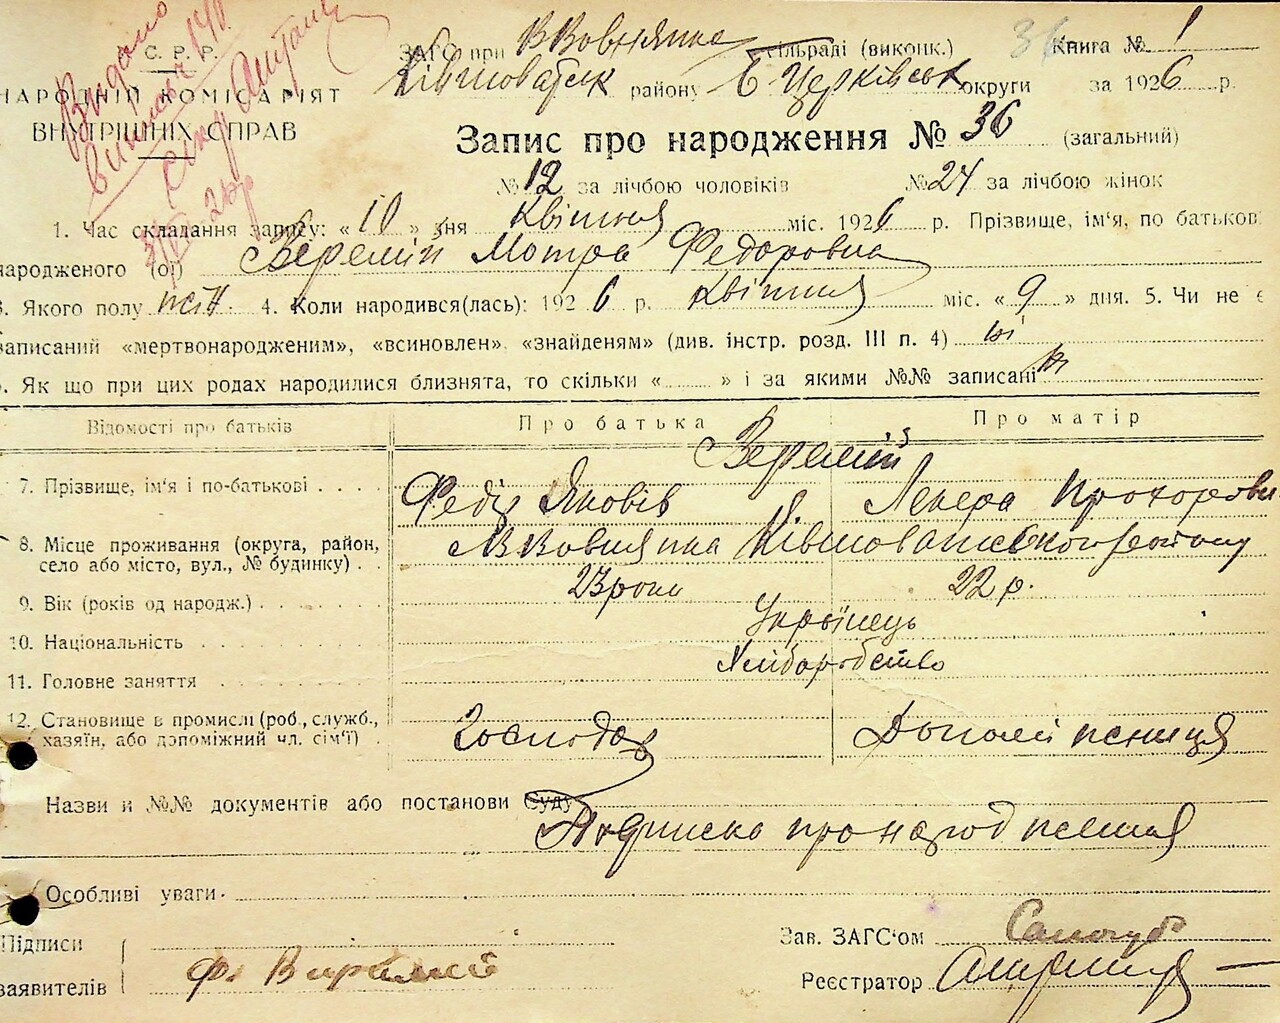 С. Р. Р.
НАРОДНІЙ КОМІСАРІЯТ
ВНУТРІШНІХ СПРАВ
Видано
ЗАГС при В Вовнянка сільраді (виконк.) 36 Книга № 1
Ківшоватськ району Б Церківськ округи за 1926 р.
Запис про народження № 36 (загальний)
№ 12 за лічбою чоловіків № 24 за лічбою жінок
1. Час складання запису: « 10 » дня Квітня міс. 1926 р. Прізвище, ім'я, по батьков
народженого (ої) Веремій Мотря Федоровна
3. Якого полу жін. 4. Коли народився(лась): 1926 р. Квітня міс. « 9 » дня. 5. Чи не є
записаний «мертвонародженим», «всиновлен», «знайденям» (див. інстр. розд. III п. 4) ні
. Як що при цих родах народилися близнята, то скільки « » і за якими №№ записані ні
Відомості про батьків Про батька Про матір
Веремій
7. Прізвище, ім'я і по-батькові Федір Яковів Лекера Прохоровн
8. Місце проживання (округа, район, В Вовнянка Ківшоватського району
село або місто, вул., № будинку)
9. Вік (років од народж.) 23 роки 22 р.
10. Національність Українець
11. Головне заняття Хліборобство
12. Становище в промислі (роб., служб., Господар Допоміжниця
хазяїн, або допоміжний чл. сім'ї)
Назви й №№ документів або постанови Суду
Підписка про народження
Особливі уваги
Підписи
заявителів Ф. Виремий
Зав. ЗАГС'ом
Реєстратор